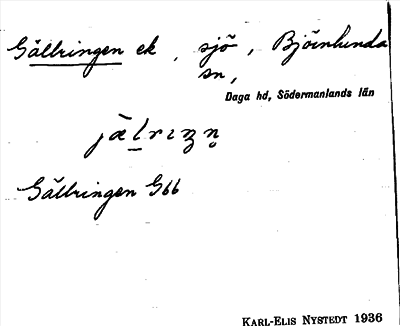 Gällringen ek, sjö, Björnlunda
sn,
Daga hd, Södermanlands län
Gällringen Gbb
KARL-ELIS NYSTEDT 1936